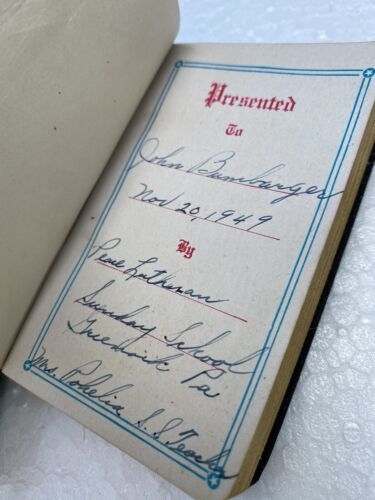 Presented
To
John Bumbarger
Nov 20, 1949
By
Peace Lutheran
Sunday School
Pa
Mrs. S.S. Teacher